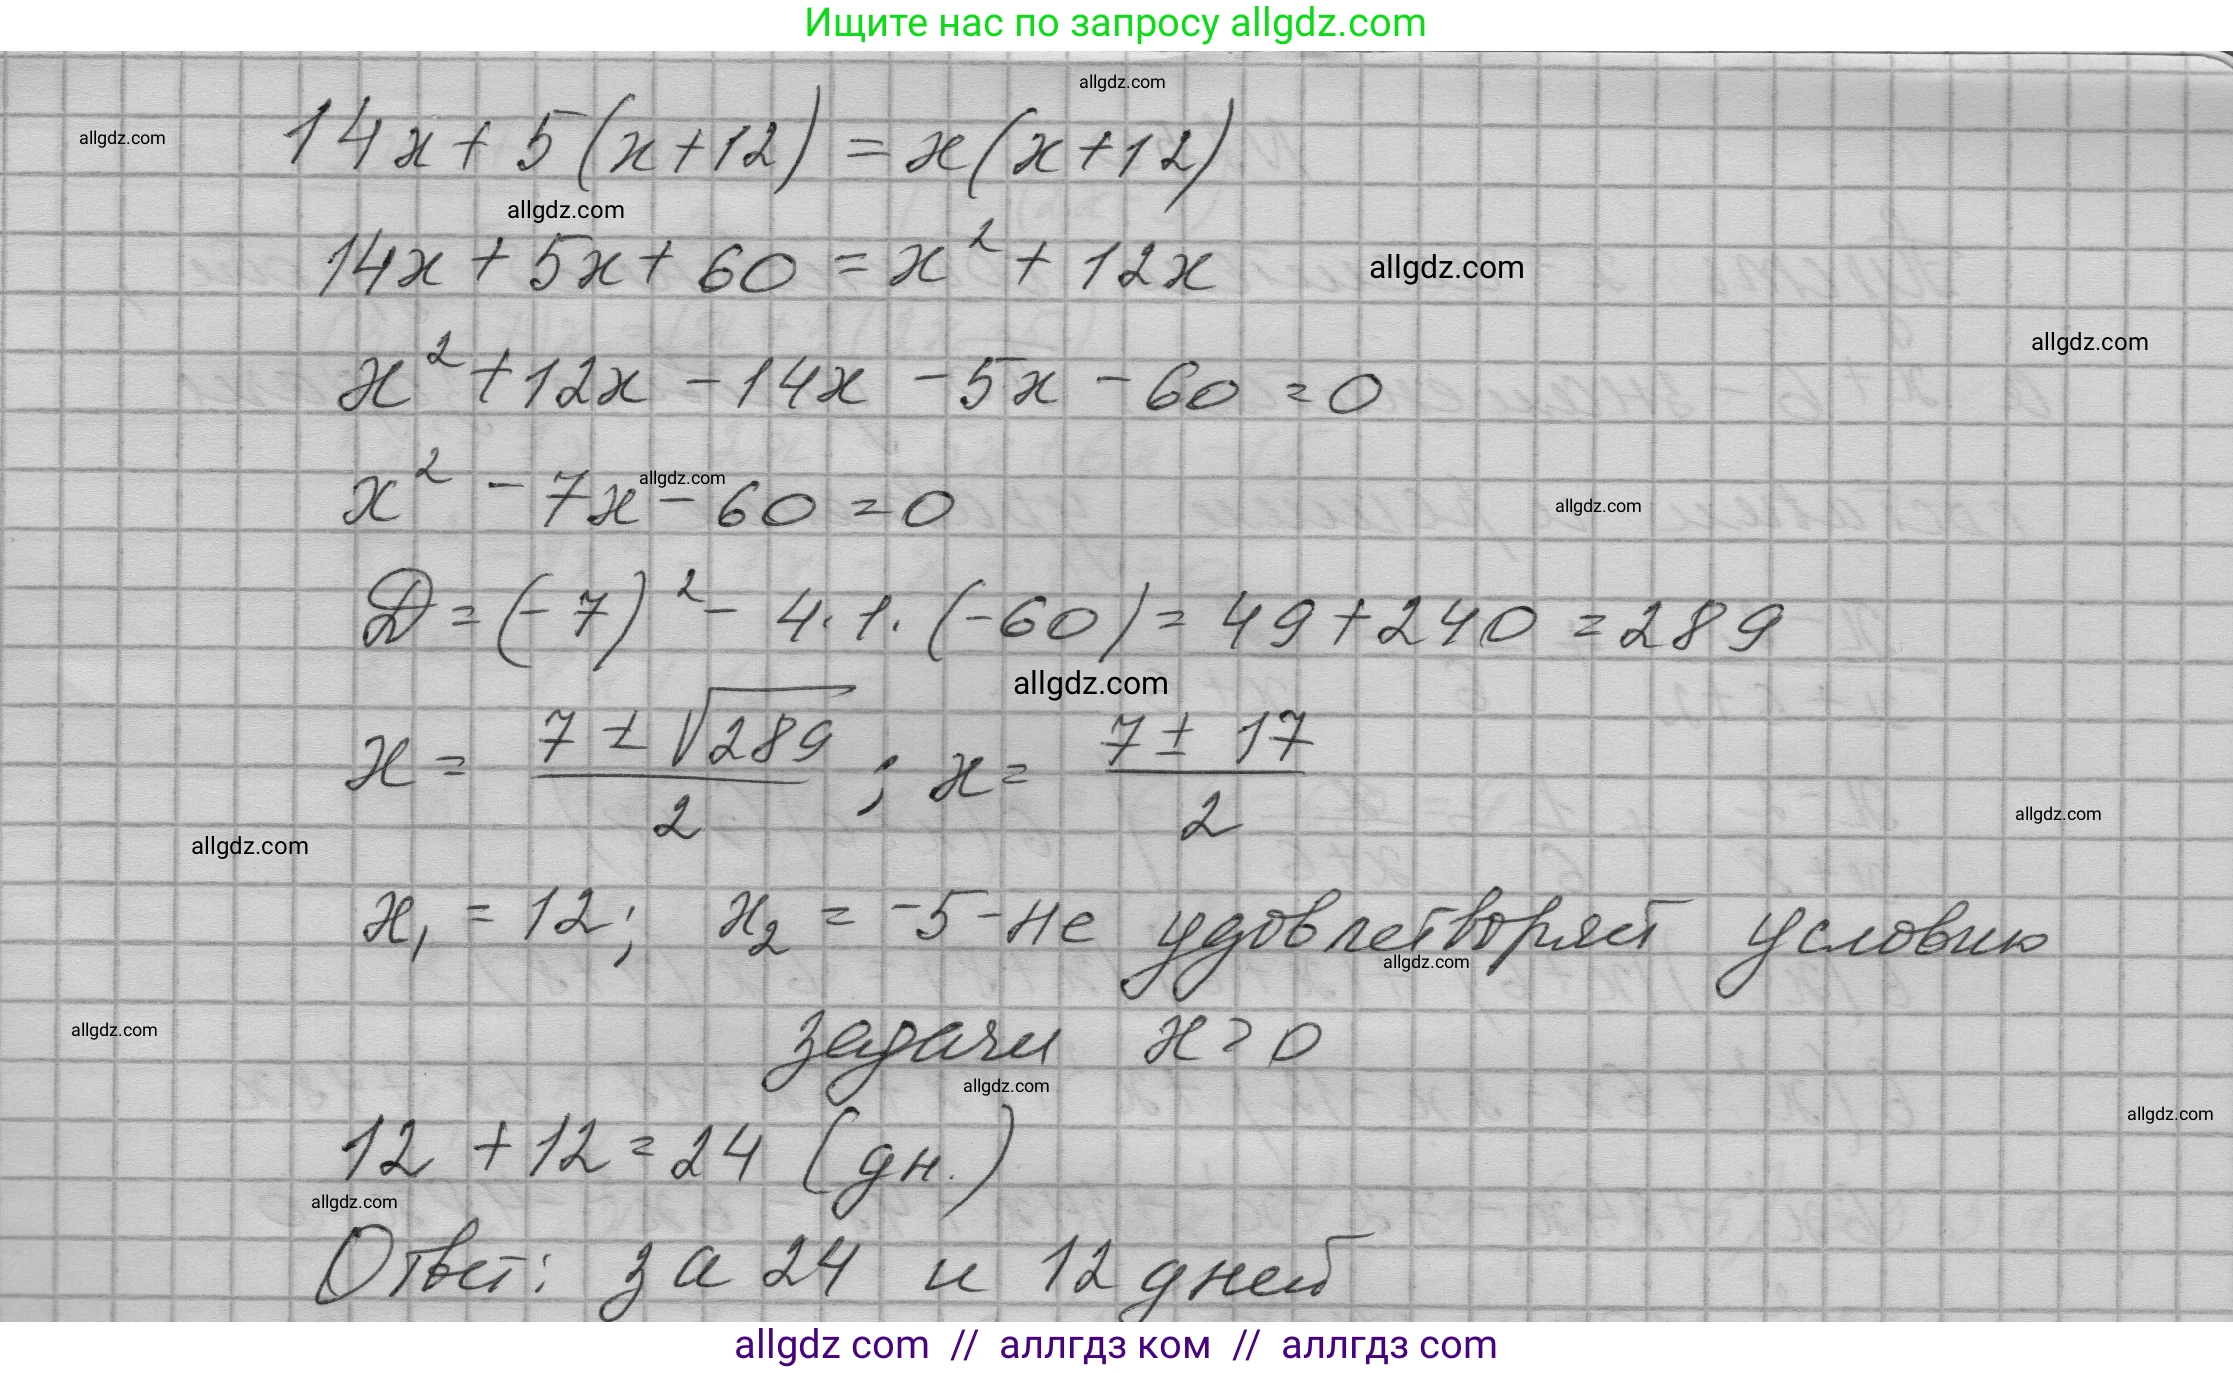 Ищите нас по запросу allgdz.com
allgdz.com
allgdz.com
14x + 5(x+12) = x(x+12)
allgdz.com
14x + 5x + 60 = x² + 12x
allgdz.com
allgdz.com
x² + 12x - 14x - 5x - 60 = 0
x² - 7x - 60 = 0
allgdz.com
allgdz.com
D = (-7)² - 4·1·(-60) = 49 + 240 = 289
allgdz.com
x = (7 ± √289)/2 ; x = (7 ± 17)/2
allgdz.com
allgdz.com
x₁ = 12; x₂ = -5 - не удовлетворяет условию
allgdz.com
allgdz.com
задачи x > 0
allgdz.com
allgdz.com
12 + 12 = 24 (дн.)
allgdz.com
Ответ: за 24 и 12 дней
allgdz com // аллгдз ком // аллгдз com